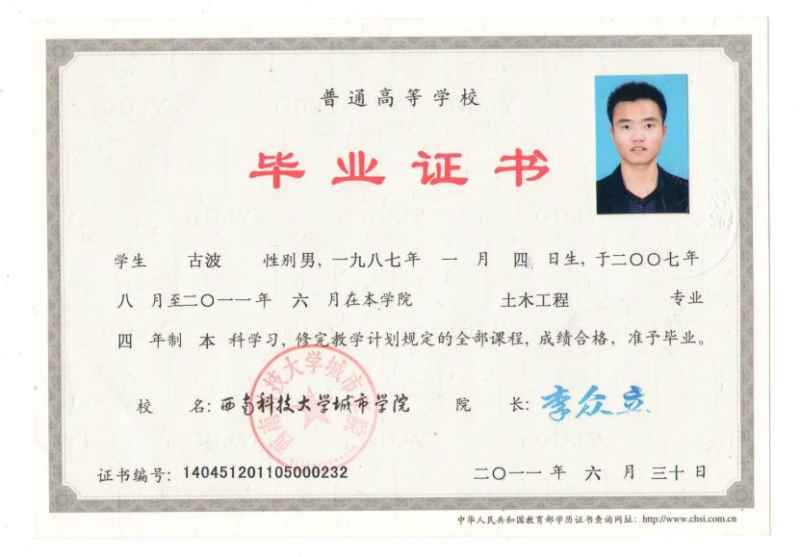 普通高等学校
毕业证书
学生 古波 性别男，一九八七年 一 月 四 日生，于二〇〇七年
八 月至二〇一一年 六 月在本学院 土木工程 专业
四 年制 本 科学习，修完教学计划规定的全部课程，成绩合格，准予毕业。
校 名：西南科技大学城市学院 院 长：李众立
西南科技大学城市学院
证书编号：140451201105000232 二〇一一年 六 月 三十 日
中华人民共和国教育部学历证书查询网址：http://www.chsi.com.cn